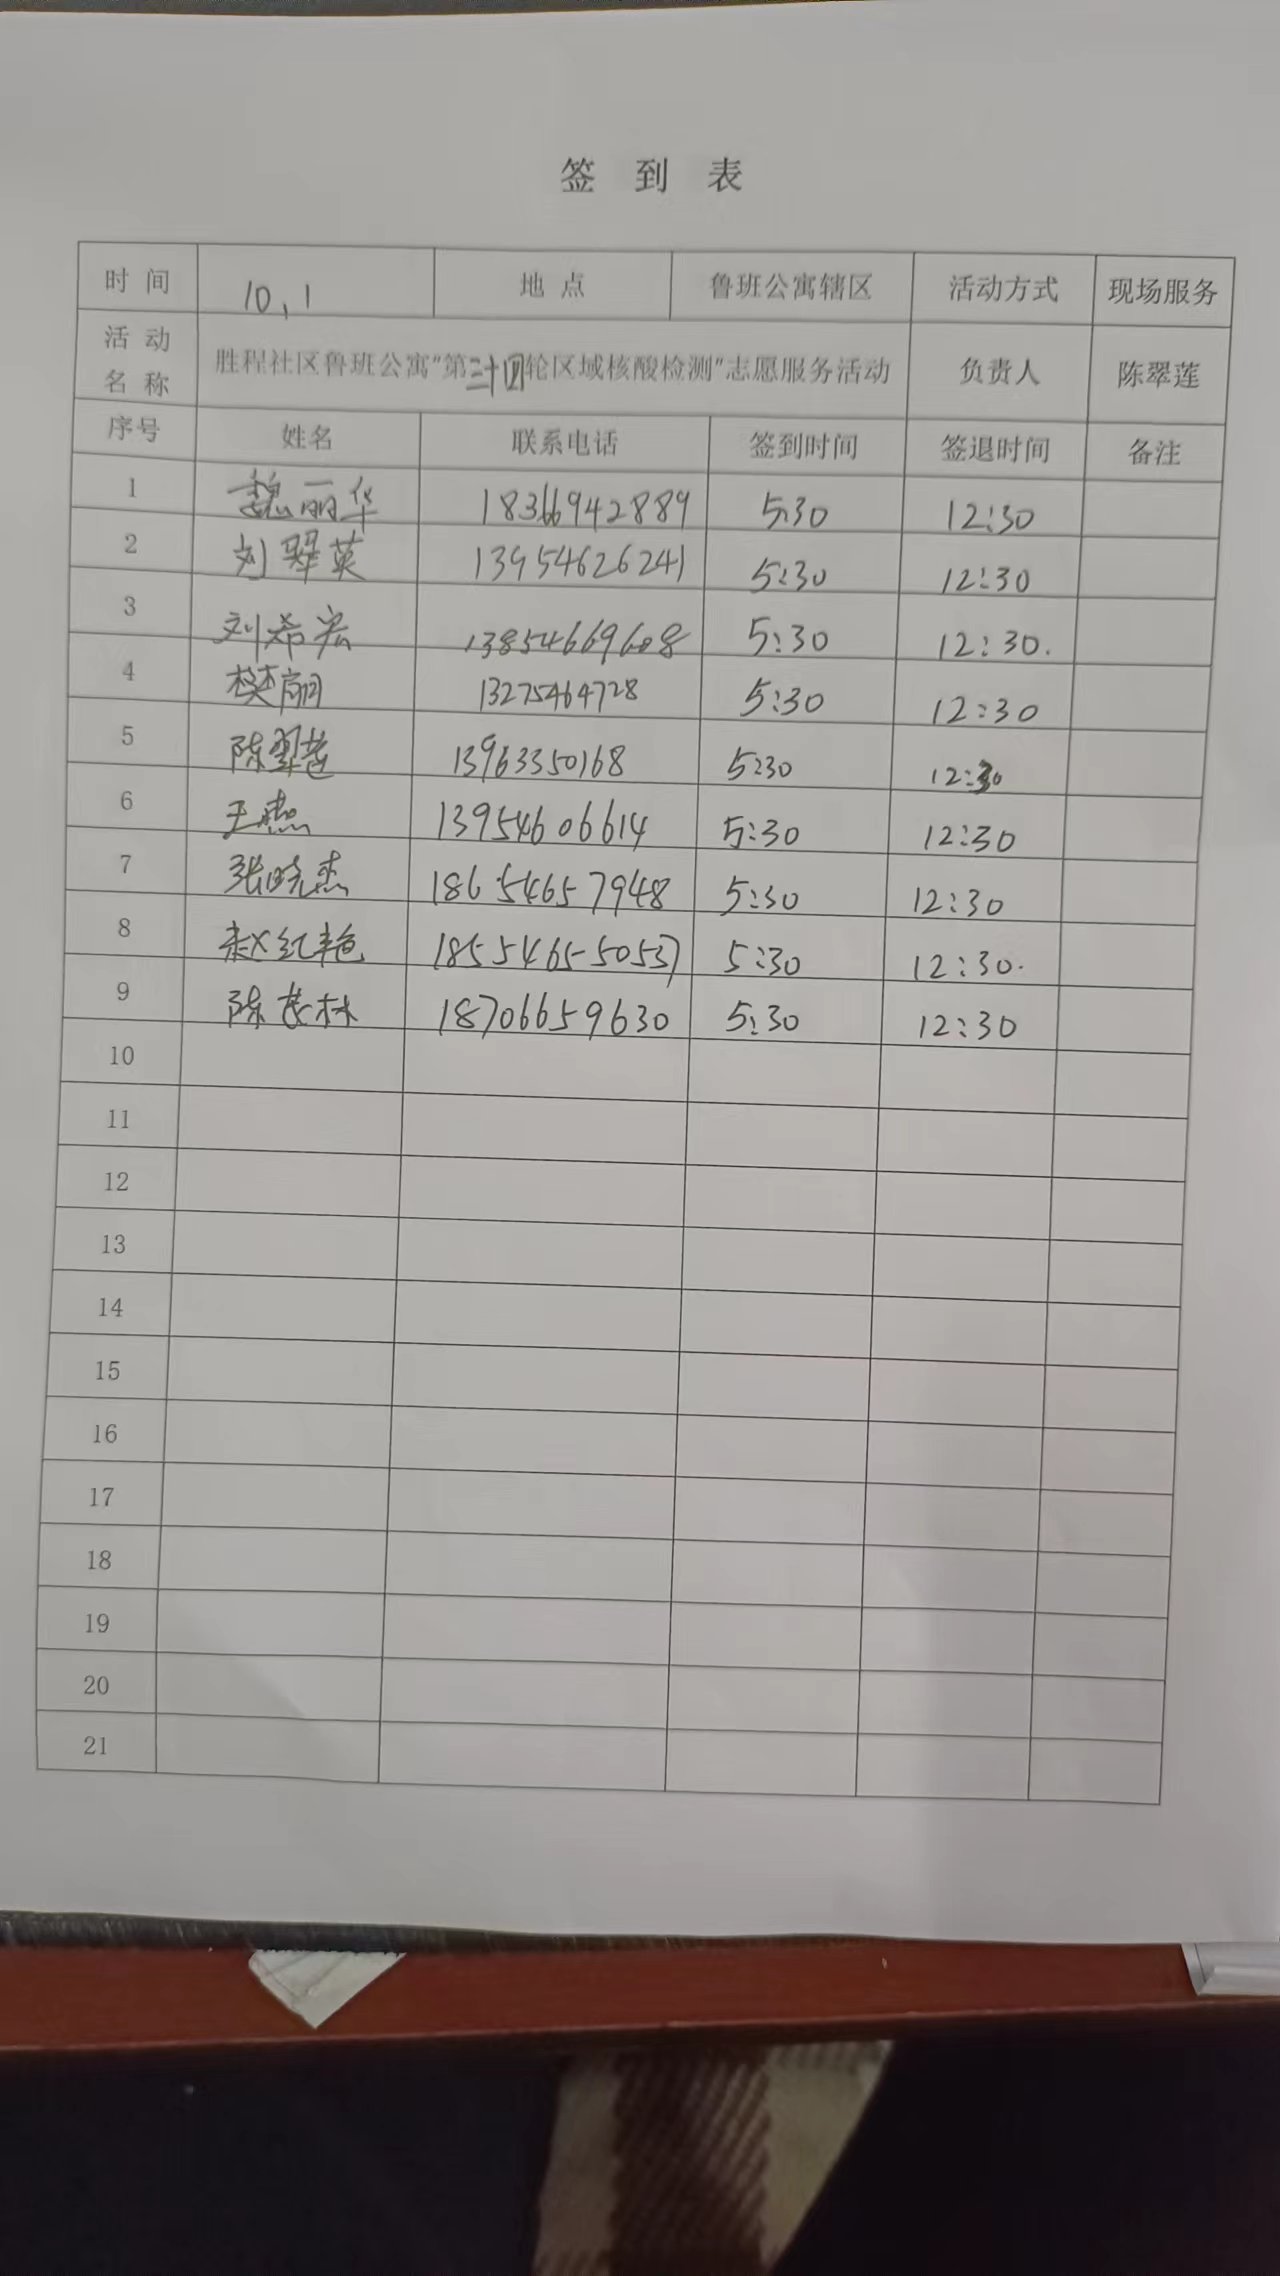 签 到 表
时 间 10,1 地 点 鲁班公寓辖区 活动方式 现场服务
活 动 名 称 胜程社区鲁班公寓"第二十四轮区域核酸检测"志愿服务活动 负责人 陈翠莲
序号 姓名 联系电话 签到时间 签退时间 备注
1 魏丽华 18366942889 5:30 12:30
2 刘翠英 13954626241 5:30 12:30
3 刘希宏 13854669608 5:30 12:30.
4 樊丽 13275464728 5:30 12:30
5 陈翠莲 13963350168 5:30 12:30
6 王燕 13954606614 5:30 12:30
7 张晓杰 18654657948 5:30 12:30
8 赵红艳 18554655053 5:30 12:30.
9 陈长林 18706659630 5:30 12:30
10
11
12
13
14
15
16
17
18
19
20
21